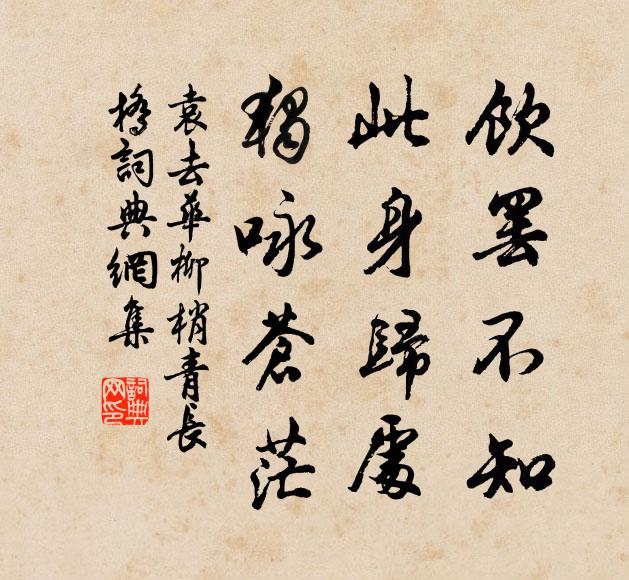 飲罷不知
此身歸處
獨咏蒼茫
袁去華柳梢青長
橋詞典網集
詞典
网印